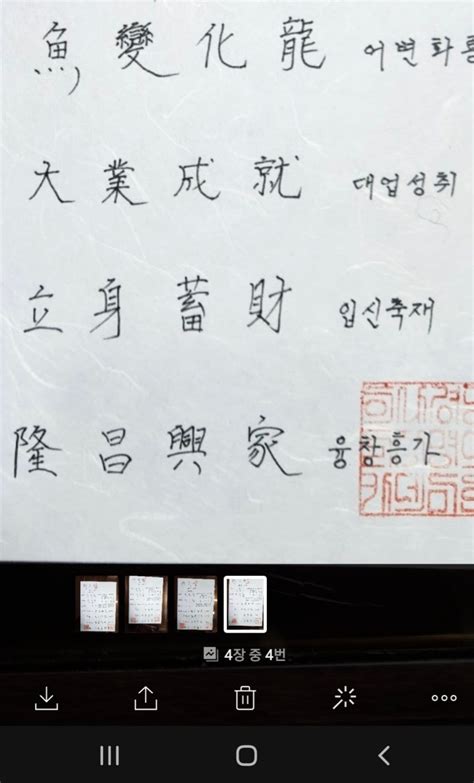 魚變化龍 어변화룡
大業成就 대업성취
立身蓄財 입신축재
隆昌興家 융창흥가
4장 중 4번